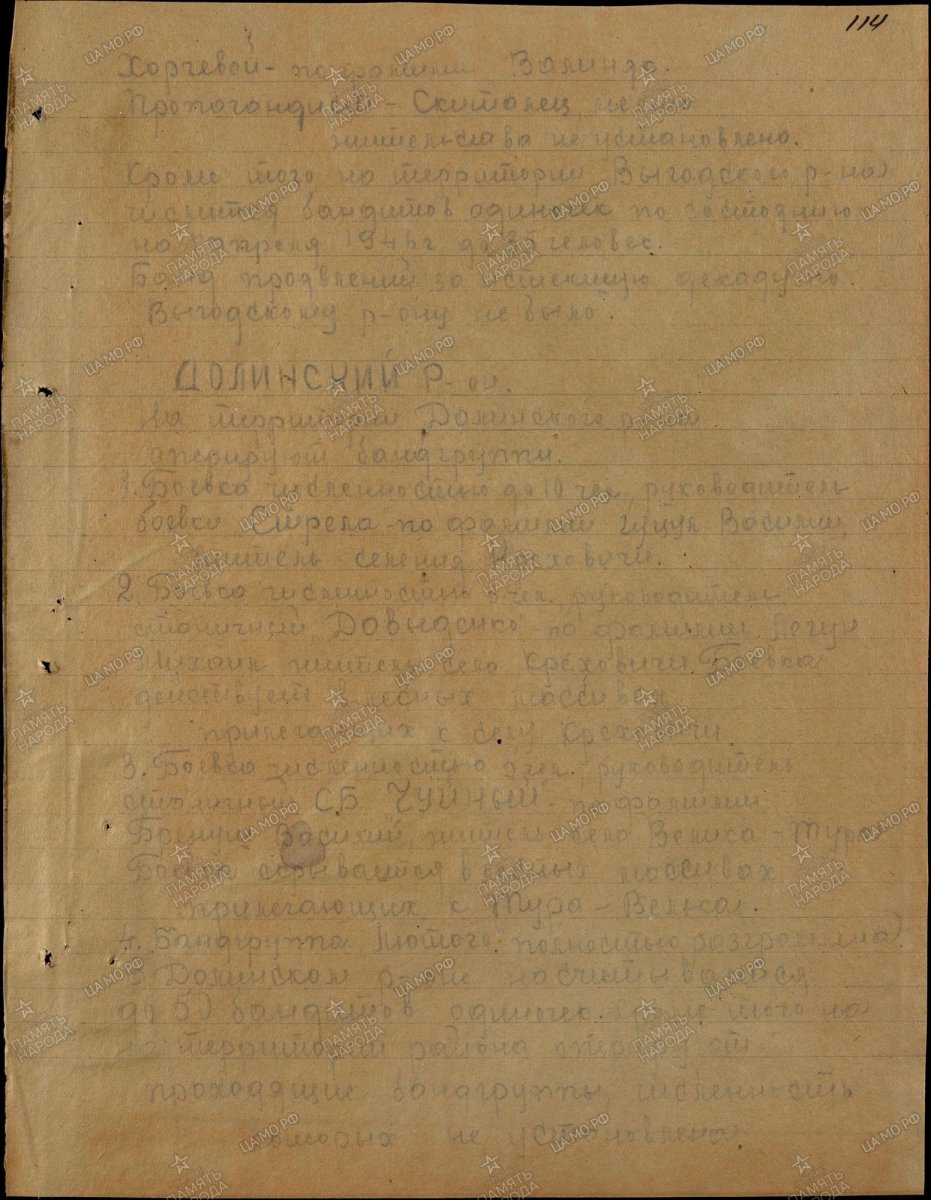 114
Хорчевой - по фамилии Залинда.
Пропогандист - Скиталец, место
жительсва не установлено.
Кроме того на территории Выгодского р-на
числится бандитов одиночек по состоянию
на апреля 1946 г до 25 человек.
Банд проявлений за истекшую декаду по
Выгодскому р-ону не было.
ДОЛИНСКИЙ Р-он.
На территории Долинского р-она
оперируют бандгруппы.
1. Боевка численностью до 10 чел, руководитель
боевки "Стрела" - по фамилии Гуцул Василий,
житель селения Креховичи.
2. Боевка численностью чел, руководитель
станичный "Довыденко" - по фамилии
Михаил житель село Креховичи. Боевка
действует в лесных массивах
прилегающих к селу Креховичи.
3. Боевка численностью чел., руководитель
СБ "ЧУЙНЫЙ" - по фамилии
Василий, житель село Велика - Тура
Боевка скрывается в лесных массивах,
прилегающих к Тура - Велькая.
4. Бандгруппа "Лютого" полностью разгромлена
В Долинском р-оне насчитывается
до 50 бандитов одиночек. Кроме того на
на территории района оперируют
проходящие бандгруппы, численность
которых не установлена.
ПАМЯТЬ НАРОДА
ЦА МО РФ